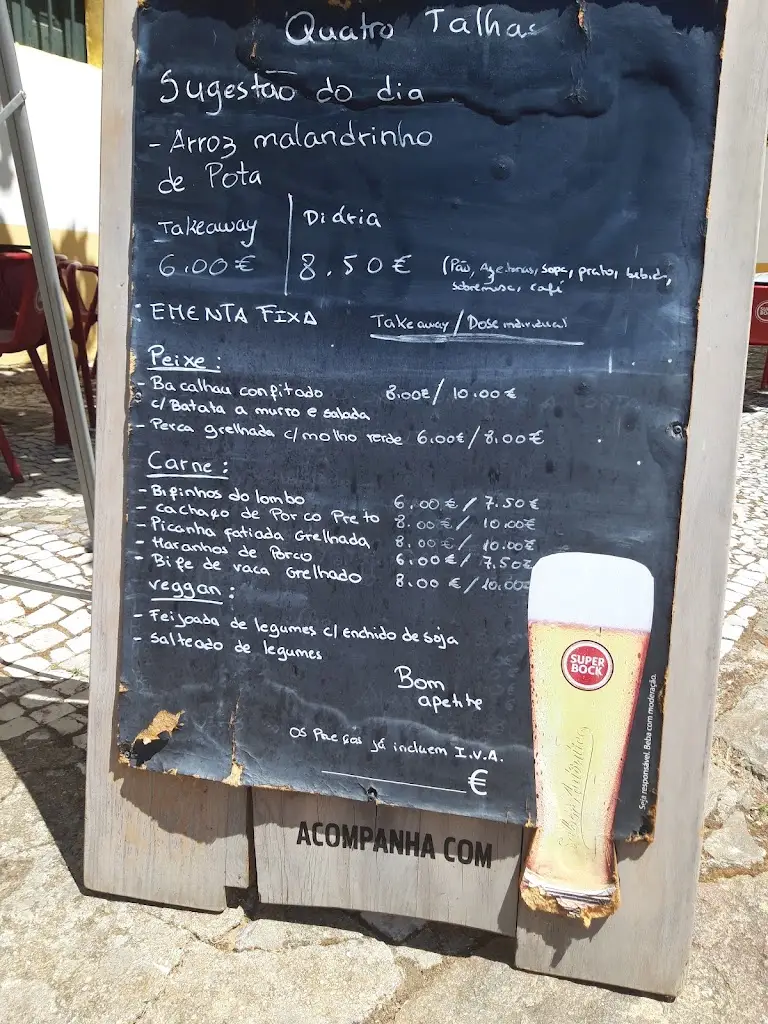 Quatro Talhas
Sugestão do dia
- Arroz malandrinho
de Pota
Takeaway | Diária
6.00€ | 8.50€ (Pão, Azeitonas, sopa, prato, bebida,
sobremesa, café
EMENTA FIXA Takeaway/Dose individual
Peixe:
- Bacalhau confitado 8.00€/10.00€
c/Batata a murro e salada
- Perca grelhada c/molho verde 6.00€/8.00€
Carne:
- Bifinhos do lombo 6.00€/7.50€
- cachaço de Porco Preto 8.00€/10.00€
- Picanha fatiada Grelhada 8.00€/10.00€
- Maranhos de Porco 6.00€/7.50€
- Bife de vaca Grelhado 8.00€/10.00€
veggan:
- Feijoada de legumes c/enchido de soja
- Salteado de legumes
Bom
apetite
Os Preços já incluem I.V.A.
€
SUPER
BOCK
Seja responsável. Beba com moderação.
ACOMPANHA COM